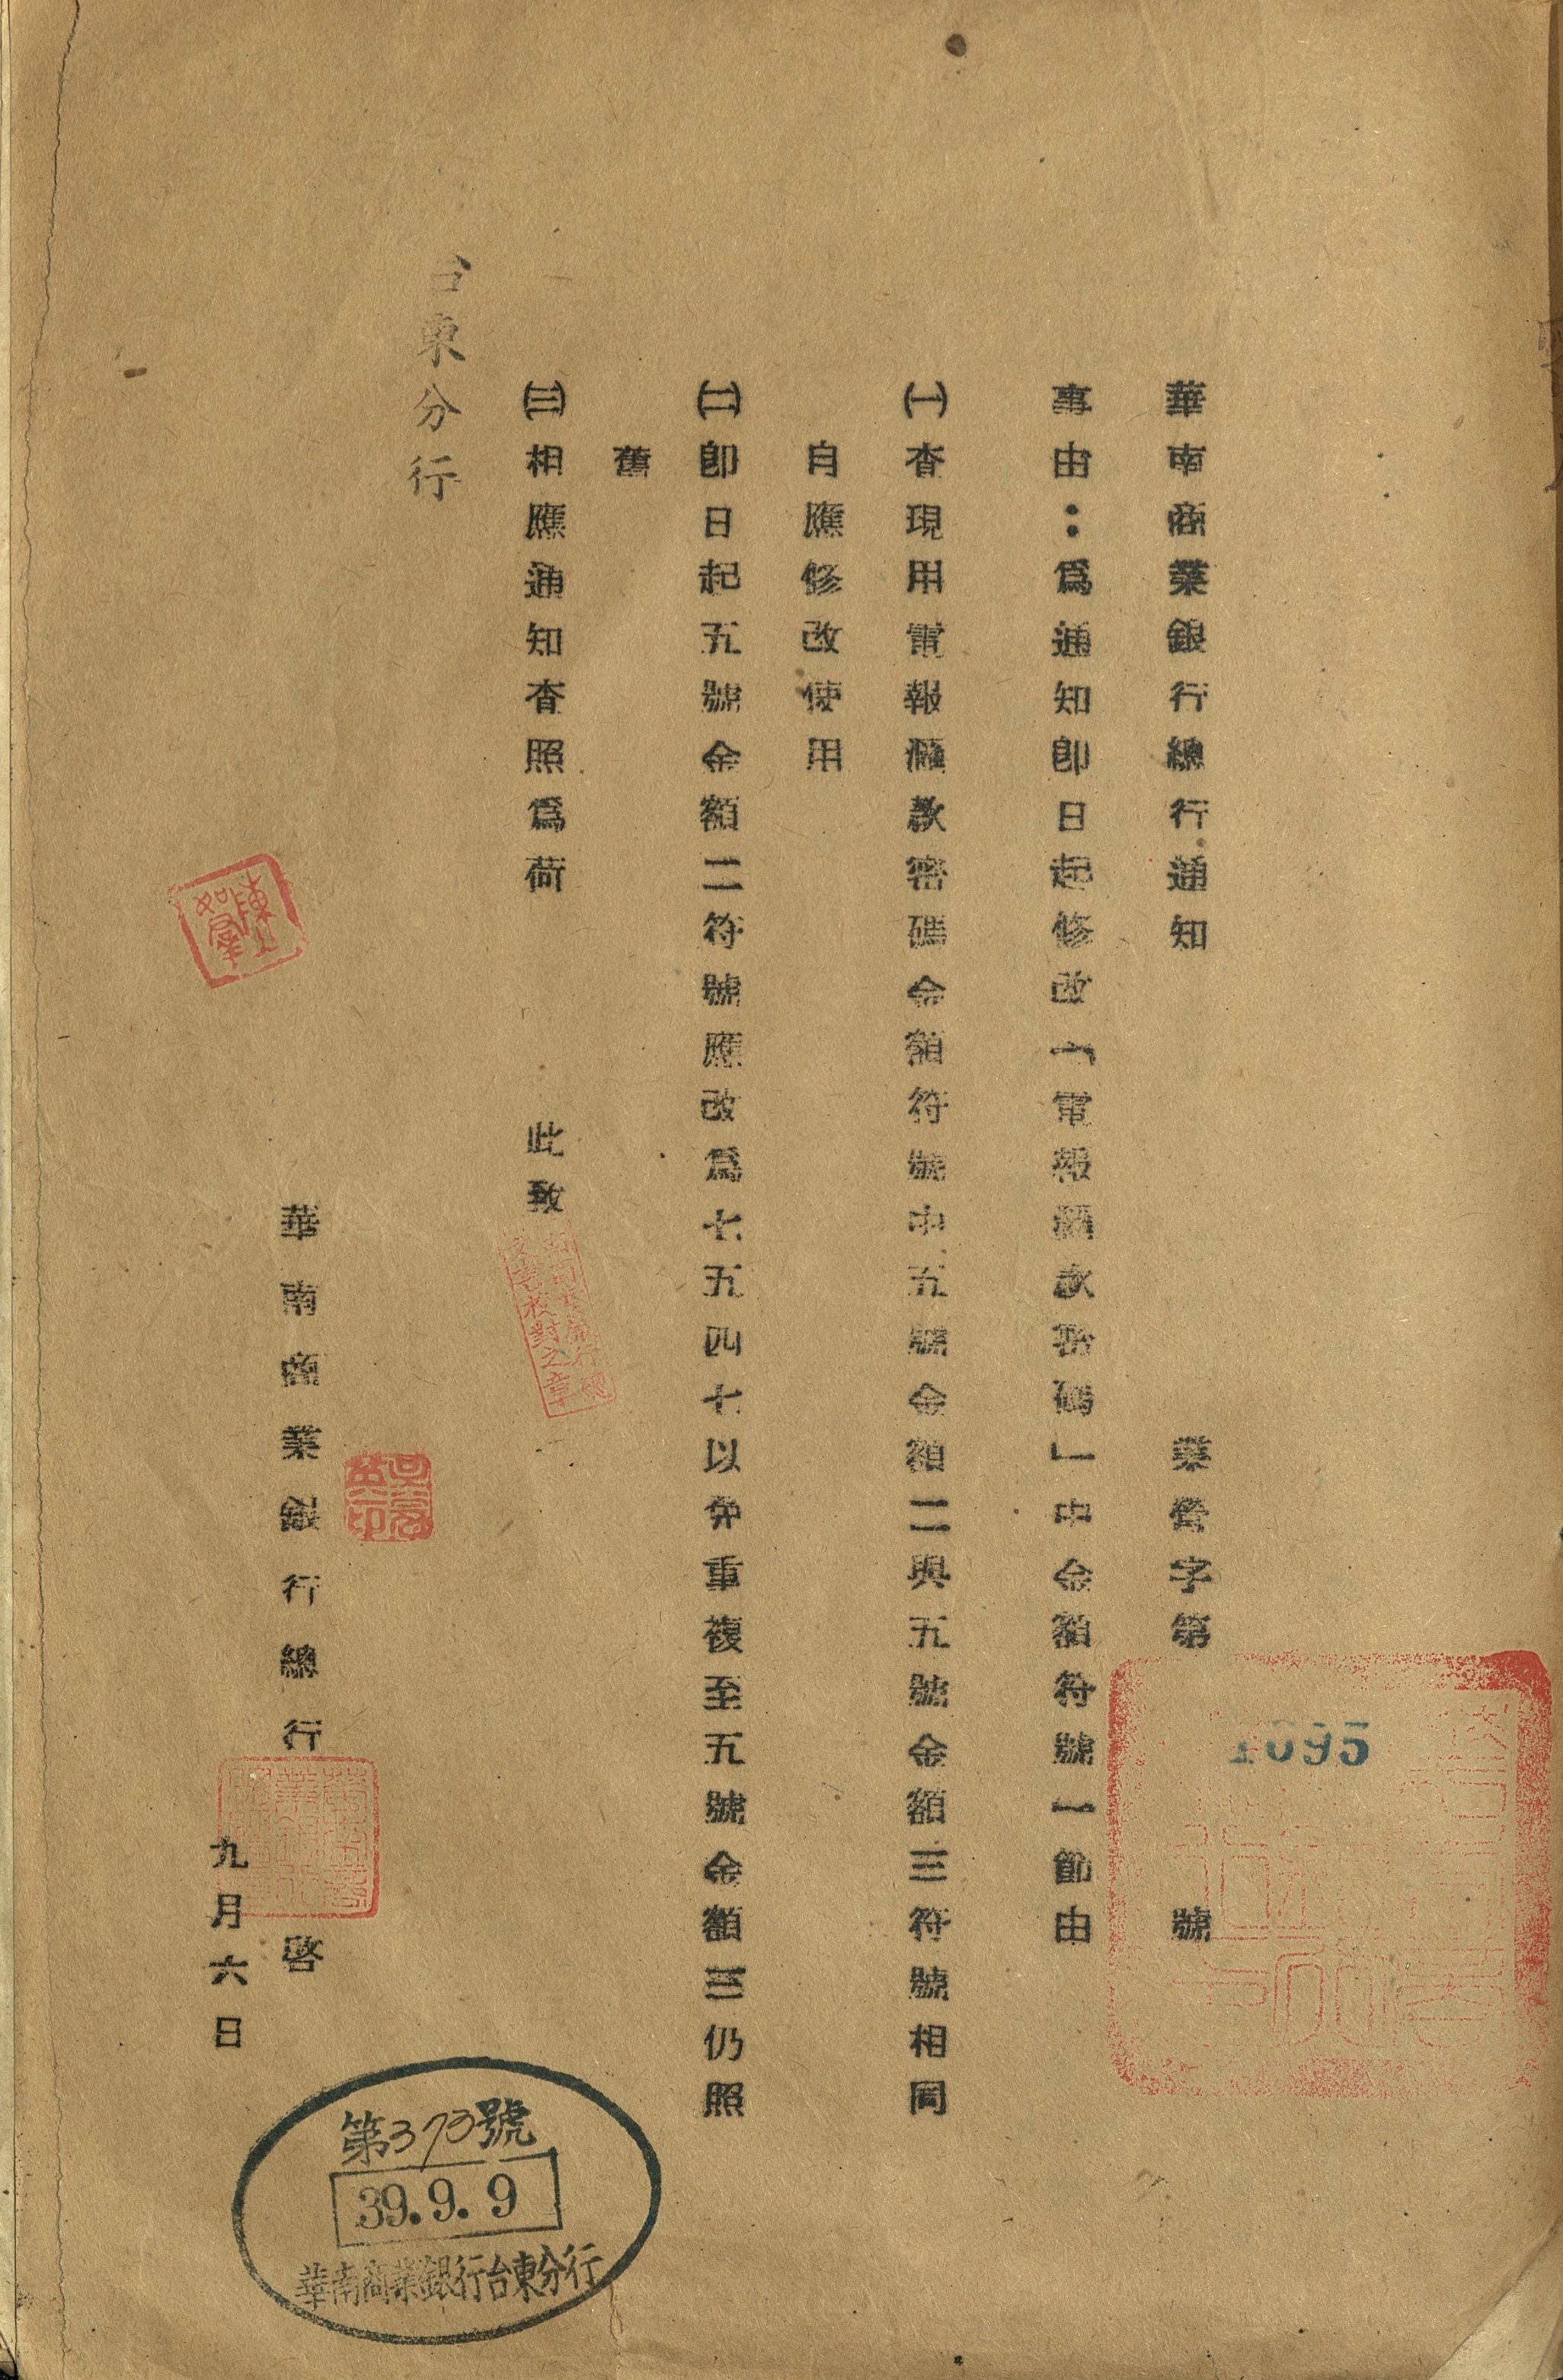 華南商業銀行總行通知 業營字第1695號
事由：爲通知卽日起修改「電報滙款密碼」中金額符號一節由
㈠查現用電報滙款密碼金額符號中五號金額二與五號金額三符號相同
自應修改使用
㈡卽日起五號金額二符號應改爲七五四七以免重複至五號金額三仍照
舊
㈢相應通知查照爲荷 此致
台東分行
文書校對之章
華南商業銀行總行 啓
九月六日
第373號
39.9.9
華南商業銀行台東分行